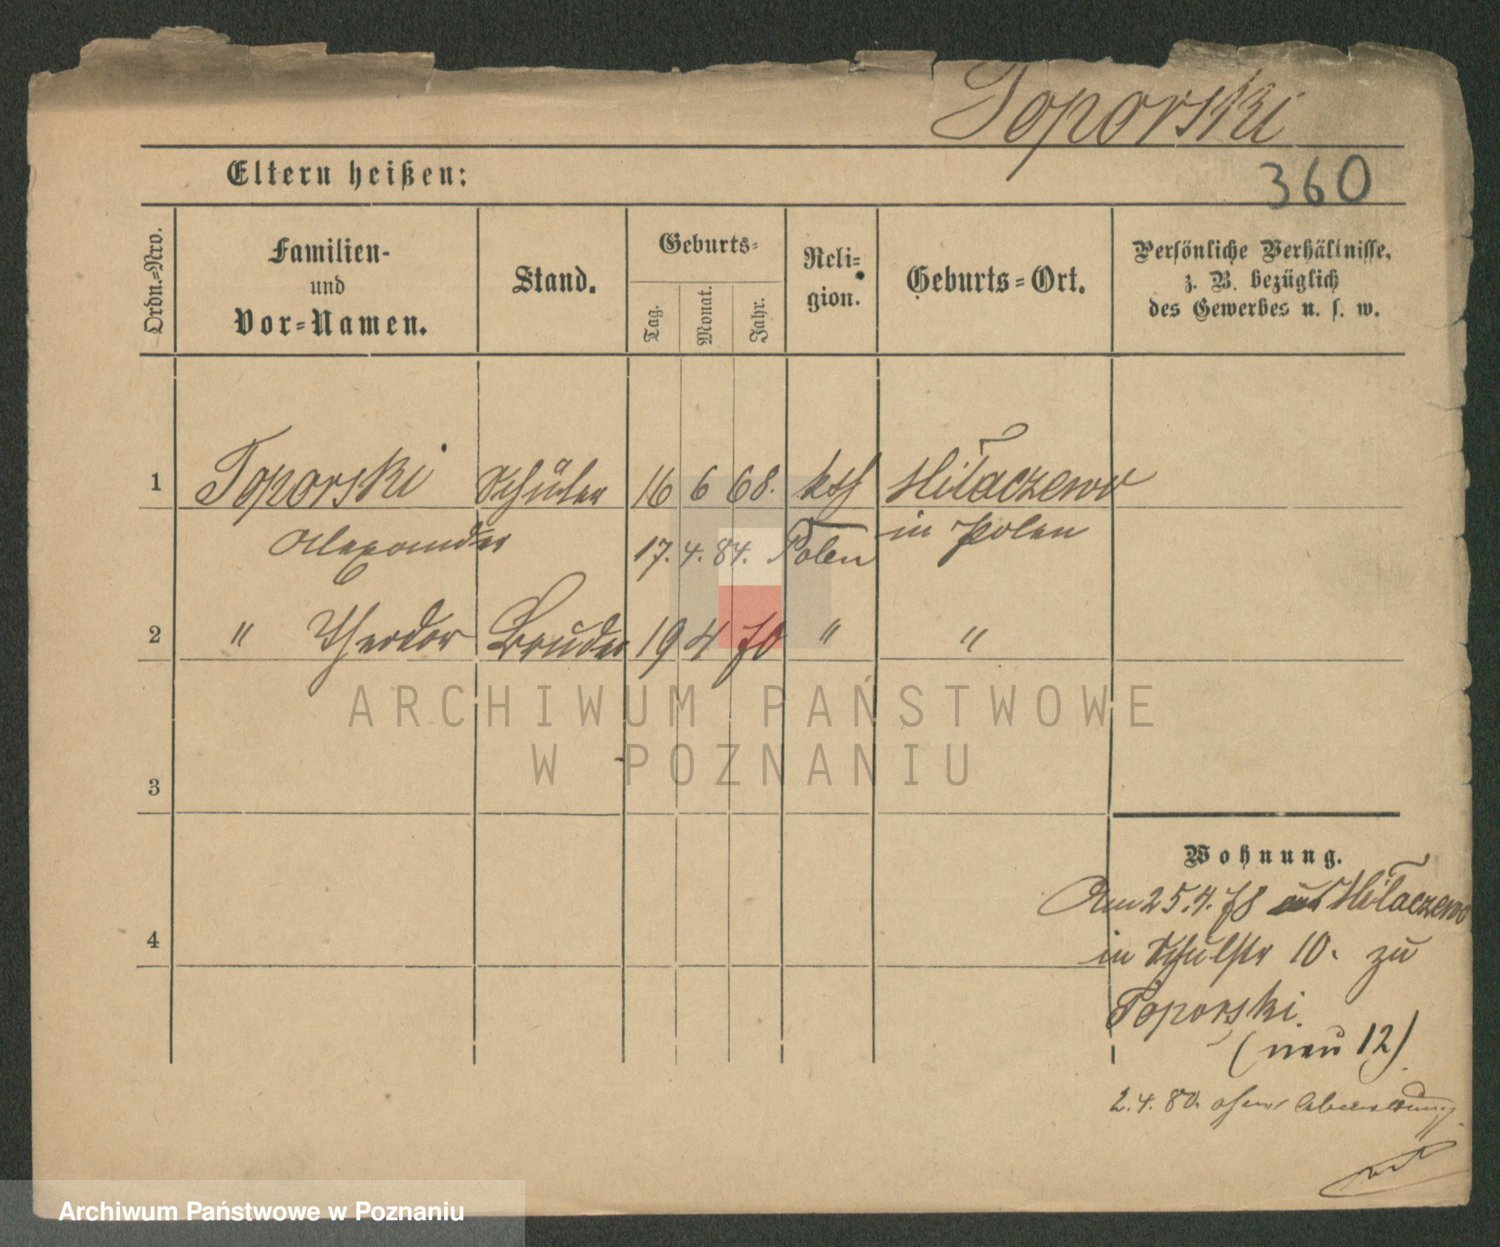 Toporski
Eltern heißen:
360
Ordn.-Nro.
Familien-
und
Vor-Namen.
Stand.
Geburts-
Tag.
Monat.
Jahr.
Reli-
gion.
Geburts-Ort.
Persönliche Verhältnisse,
z. B. bezüglich
des Gewerbes u. s. w.
1 Toporski Schüler 16 6 68. kth
Alexander 17. 4. 84. Polen in Polen
2 " Theodor Bruder 19 4 70 " "
ARCHIWUM PAŃSTWOWE
W POZNANIU
3
Wohnung.
Am 25.4.78
4
in Schulstr 10. zu
Toporski.
(neu 12)
2.4.80. ohne Abmeldung
Archiwum Państwowe w Poznaniu